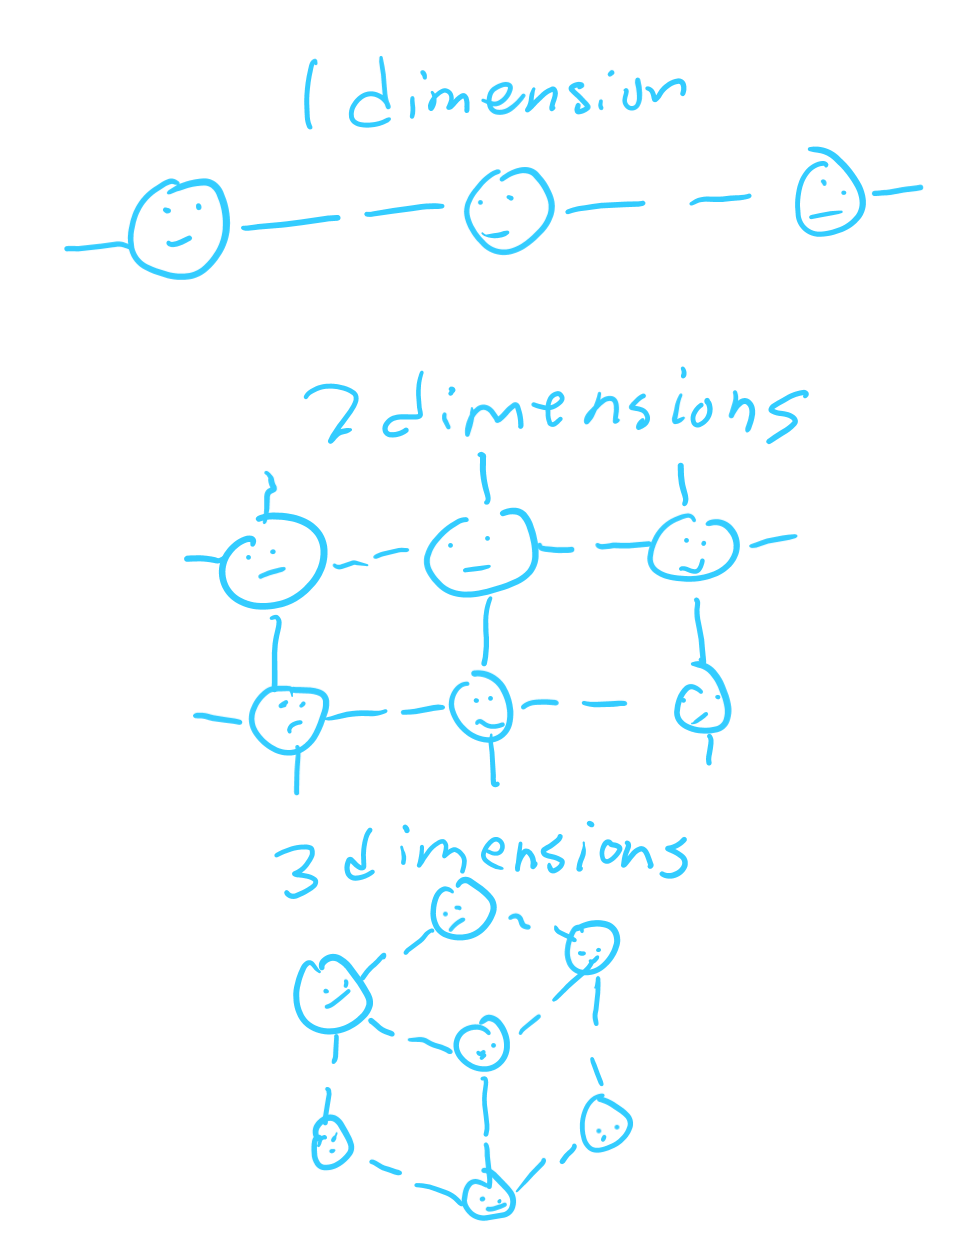 1 dimension
2 dimensions
3 dimensions